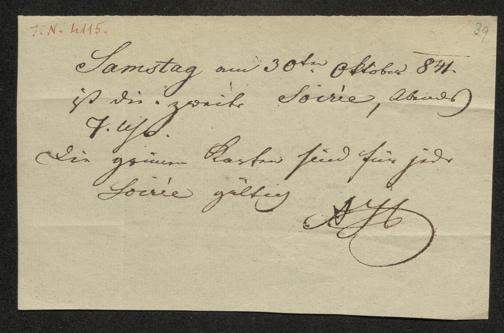 I. N. 4115.
39
Samstag am 30ten Oktober 841.
ist die zweite Soirée, Abends
7. Uhr.
Die grünen Karten sind für jede
Soirée gültig